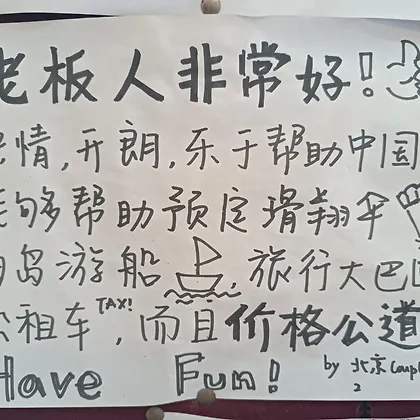 老板人非常好!
情,开朗,乐于帮助中国
够帮助预定滑翔伞
岛游船,旅行大巴
租车TAXI!,而且价格公道
Have Fun! by 北京Coupl
2